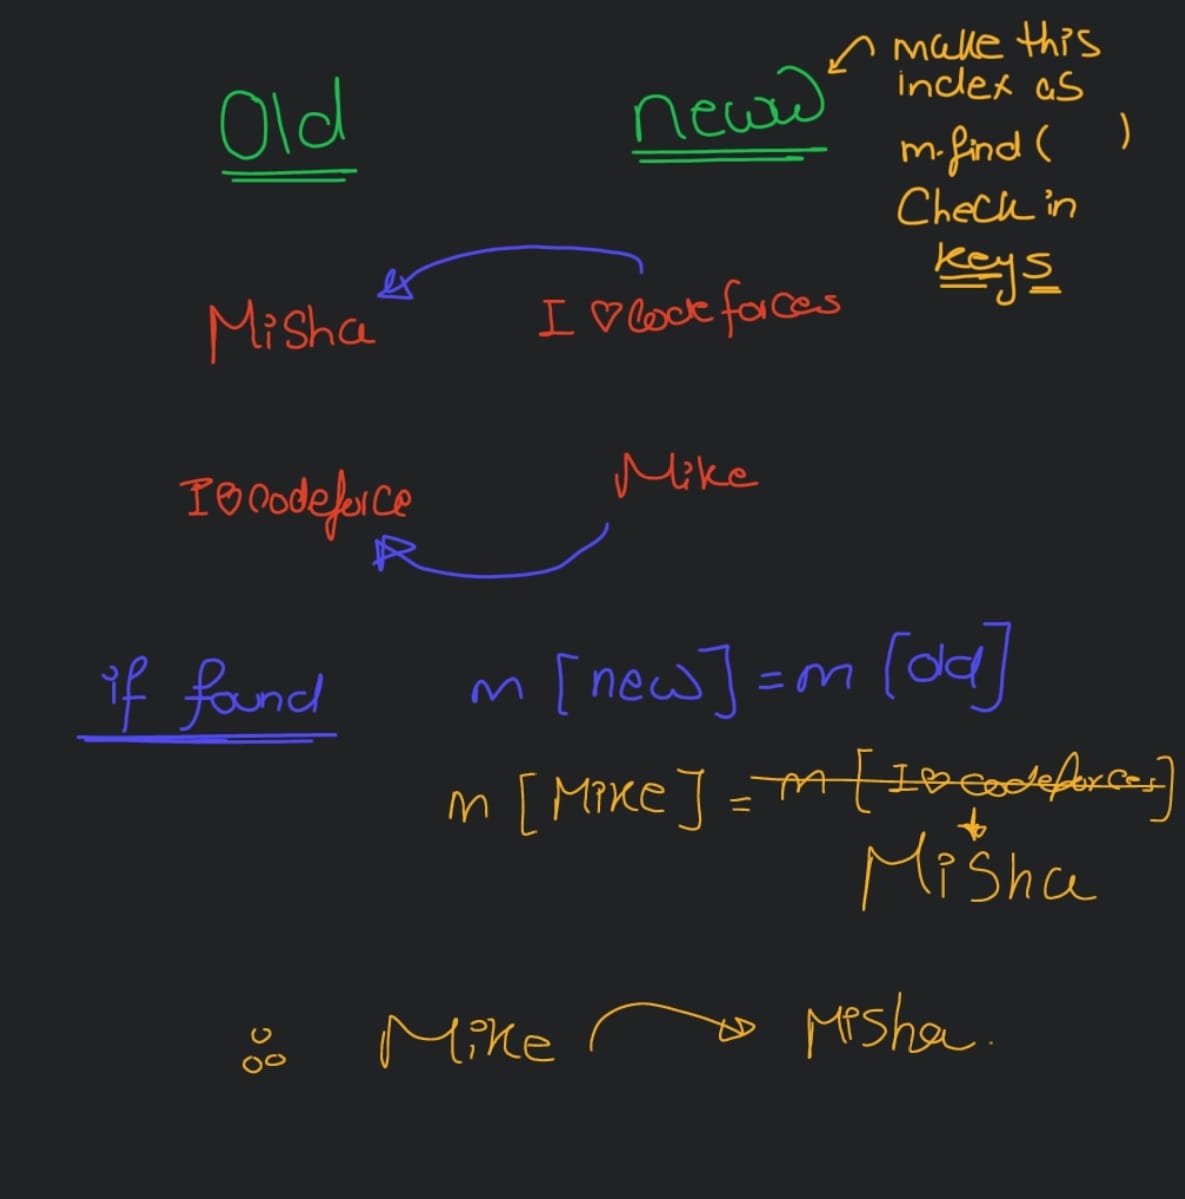 Old neww make this
index as
m.find( )
Check in
keys
Misha I ♡ Codeforces
I♡Codeforce Mike
if found m[new]=m[old]
m[Mike]=m[I♡codeforces]
Misha
∴ Mike → Misha.